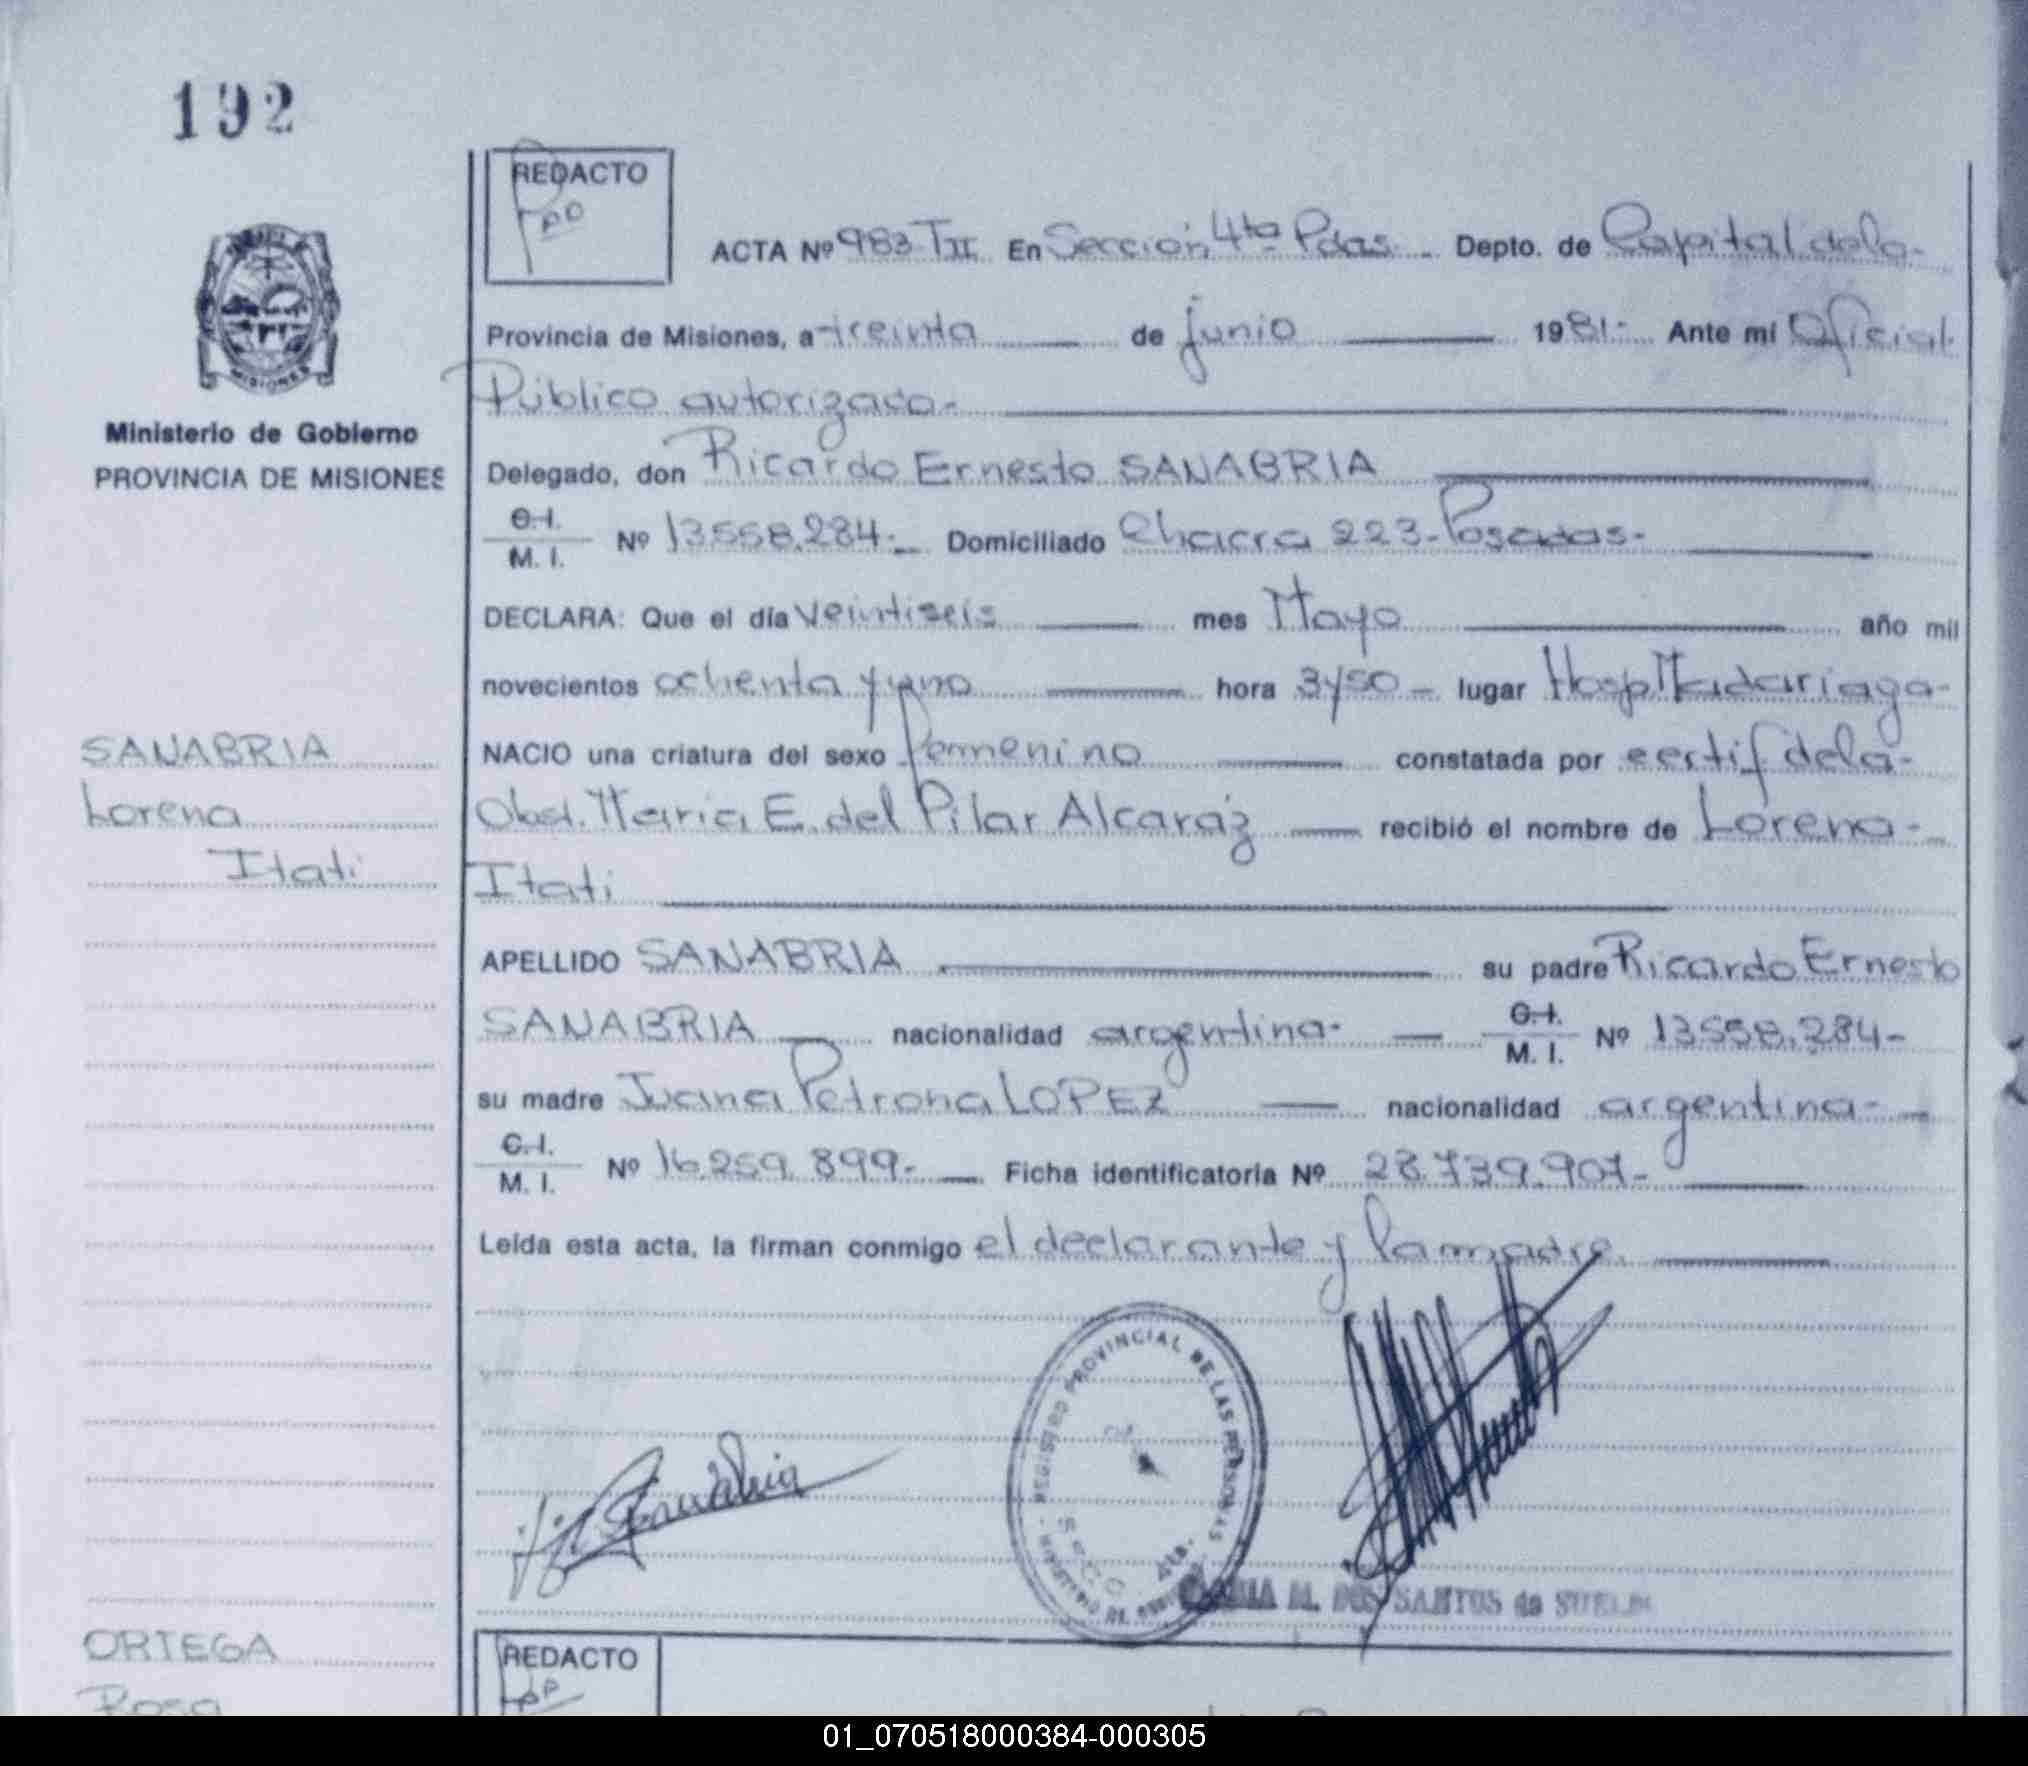 192
REDACTO
ACTA Nº 983 TII En Sección 4ta Pdas. Depto. de Capital de la
Provincia de Misiones, a treinta de junio 1981.- Ante mí Oficial
Público autorizado.-
Ministerio de Gobierno
PROVINCIA DE MISIONES
MISIONES
Delegado, don Ricardo Ernesto SANABRIA
C.I.
M. I. Nº 13.558.284.- Domiciliado Chacra 223-Posadas.-
DECLARA: Que el día veintiseis mes Mayo año mil
novecientos ochenta y uno hora 3y50 lugar Hosp Madariaga-
NACIO una criatura del sexo femenino constatada por certif de la-
Obst. Maria E. del Pilar Alcaráz recibió el nombre de Lorena-
Itati
SANABRIA
Lorena
Itati
APELLIDO SANABRIA su padre Ricardo Ernesto
SANABRIA nacionalidad argentina- C.I.
M. I. Nº 13.558.284-
su madre Juana Petrona LOPEZ nacionalidad argentina-
C.I.
M. I. Nº 16.259.899.- Ficha identificatoria Nº 28.739.907-
Leída esta acta, la firman conmigo el declarante y la madre.
REGISTRO PROVINCIAL DE LAS PERSONAS
4ta.
M. DOS SANTOS de
ORTEGA
Rosa
REDACTO
01_070518000384-000305